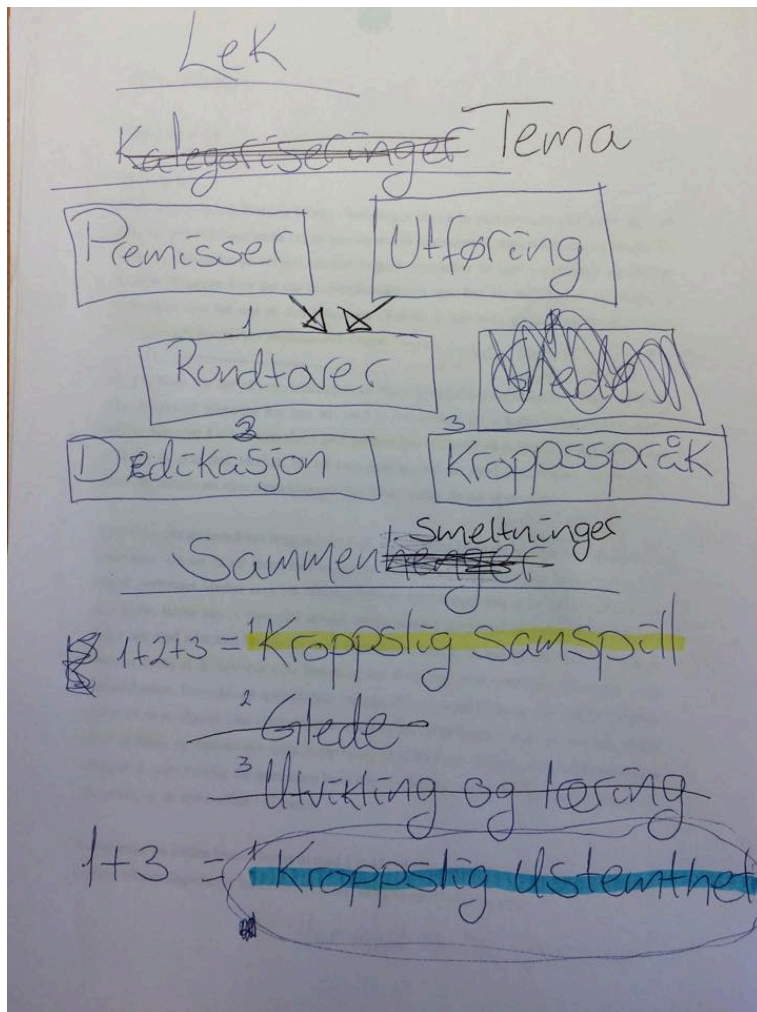 Lek
Kategoriseringer Tema
Premisser Utføring
1
Rundtaver Glede
2 3
Dedikasjon Kroppsspråk
Smeltninger
Sammenhenger
1+2+3 = 1 Kroppslig samspill
2 Glede
3 Utvikling og læring
1+3 = 1 Kroppslig Ustemthet